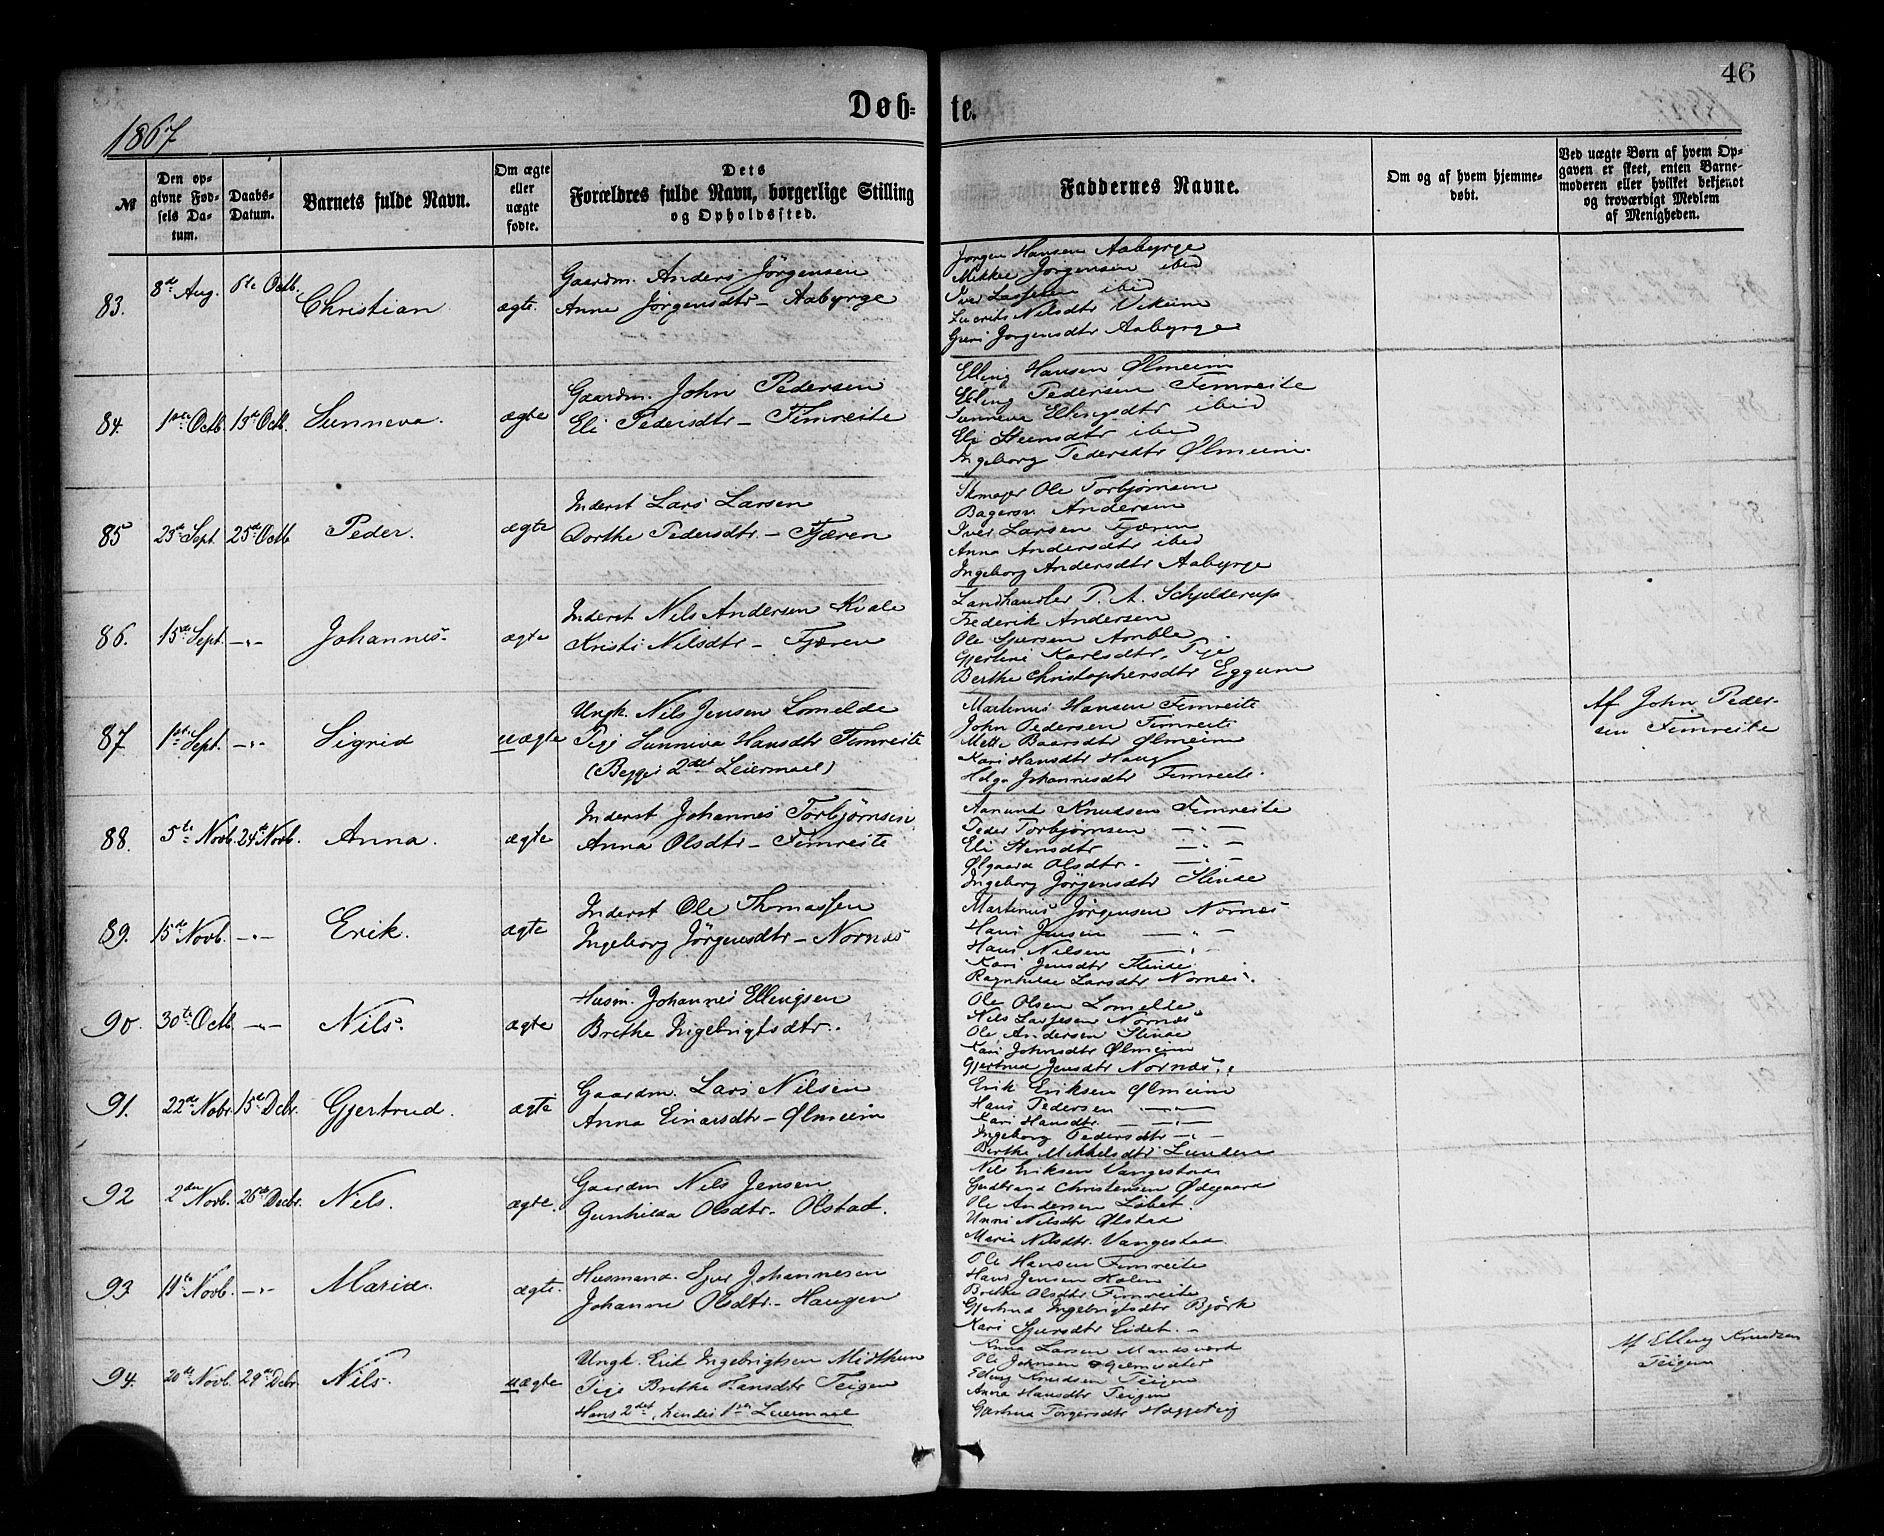 46
Døb=te.
1867
№
Den op-
givne Fød-
sels Da-
tum.
Daabs-
Datum.
Barnets fulde Navn.
Om ægte
eller
uægte
fødte.
Dets
Forældres fulde Navn, borgerlige Stilling
og Opholdssted.
Faddernes Navne.
Om og af hvem hjemme-
døbt.
Ved uægte Børn af hvem Op-
gaven er skeet, enten Barne-
moderen eller hvilket bekjendt
og troværdigt Medlem
af Menigheden.
83. 8de Aug. 6te Octb. Christian ægte.
Gaardm. Anders Jörgensen
Anne Jörgensdtr - Aabyrge
Jørgen Hansen Aabyrge
Mikkel Jørgensen ibid
Iver Lassesen ibid
Nilsdtr Vikum
Guri Jørgensdtr Aabyrge
84. 1ste Octb. 13de Octb. Sunneva. ægte
Gaardm. John Pedersen
Eli Pedersdtr - Fimreite
Elling Hansen Ølmeim
Elling Pedersen Fimreite
Sunneva Ellingsdtr ibid
Eli Steensdtr ibid
Ingeborg Pedersdtr Ølmeim
85 23de Sept. 25de Octb Peder. ægte
Inderst Lars Larsen
Dorthe Pedersdtr. - Fjæren
Skomager Ole Torbjørnsen
Andersen
Iver Larsen Fjæren
Anna Andersdtr ibid
Ingeborg Andersdtr Aabyrge
86. 15de Sept. -"- Johannes. ægte
Inderst Nils Andersen Kvale
Kristi Nilsdtr - Fjæren
Landhandler P. A. Schjelderup
Frederik Andersen
Ole Sjursen Amble
Gjertine Karlsdtr. Pige
Berthe Christophersdtr Eggum
87. 1ste Sept. -"- Sigrid uægte
Ungk. Nils Jensen Lomelde
Pige Sunniva Hansdtr Fimreite
(Begges 2det Leiermaal)
Martinus Hansen Fimreite
John Pedersen Fimreite
Mette Baarsdtr Ølmeim
Kari Hansdtr Haug
Helga Johannesdtr Fimreite.
Af John Peder-
sen Fimreite
88. 5te Novb. 24de Novb. Anna. ægte
Inderst Johannes Torbjørnsen
Anna Olsdtr - Fimreite
Aamund Knudsen Fimreite
Peder Torbjørnsen -"-
Eli Stensdtr -"-
Ølgaard Olsdtr. -"-
Ingeborg Jörgensdtr Slinde
89. 15de Novb. -"- Erik. ægte
Inderst Ole Thomassen
Ingeborg Jørgensdtr - Nornæs
Martinus Jørgensen Nornes
Hans Jensen -"-
Hans Nilsen -"-
Kari Jensdtr Slinde.
Ragnhilde Larsdtr Nornes.
90. 30te Octb. -"- Nils. ægte
Husm. Johannes Ellingsen
Brethe Ingebrigtsdtr.
Ole Olsen Lomelde
Nils Lassesen Nornæs
Ole Andersen Slinde
Kari Johnsdtr Ølmeim
Gjertrud Jensdtr Nornæs
91. 22de Nobr. 15de Debr. Gjertrud. ægte
Gaardm. Lars Nilsen
Anna Einarsdtr - Ølmeim
Erik Eriksen Ølmeim
Hans Pedersen -"-
Kari Hansdtr. -"-
Ingeborg Pedersdtr -"-
Berthe Mikkelsdtr Lunden
92 2den Novb. 26de Decbr. Nils. ægte.
Gaardm Nils Jensen
Gunhilda Olsdtr. Olstad.
Nils Eriksen Vangestad
Gudbrand Christensen Ødegaard
Ole Andersen Løbet.
Unni Nilsdtr Olstad
Maria Nilsdtr. Vangestad.
93 19de Novb. -"- Maria. ægte.
Husmand. Sjur Johannesen
Johanne Olsdtr. - Haugen
Ole Hansen Fimreite
Hans Jensen Holen
Brethe Olsdtr Fimreite
Gjertrud Ingebrigtsdtr Björk
Kari Sjursdtr Eidet. -
94. 20de Novb. 29de Debr. Nils. uægte
Ungk. Erik Ingebrigtsen Midthun
Pige Brethe Hansdtr Teigen
Hans 2det, hendes 1ste Leiermaal
Larsen
Ole Johnsen
Elling Knudsen Teigen
Anna Hansdtr Teigen
Gjertrud Torgersdtr
Af Elling Knudsen
Teigen